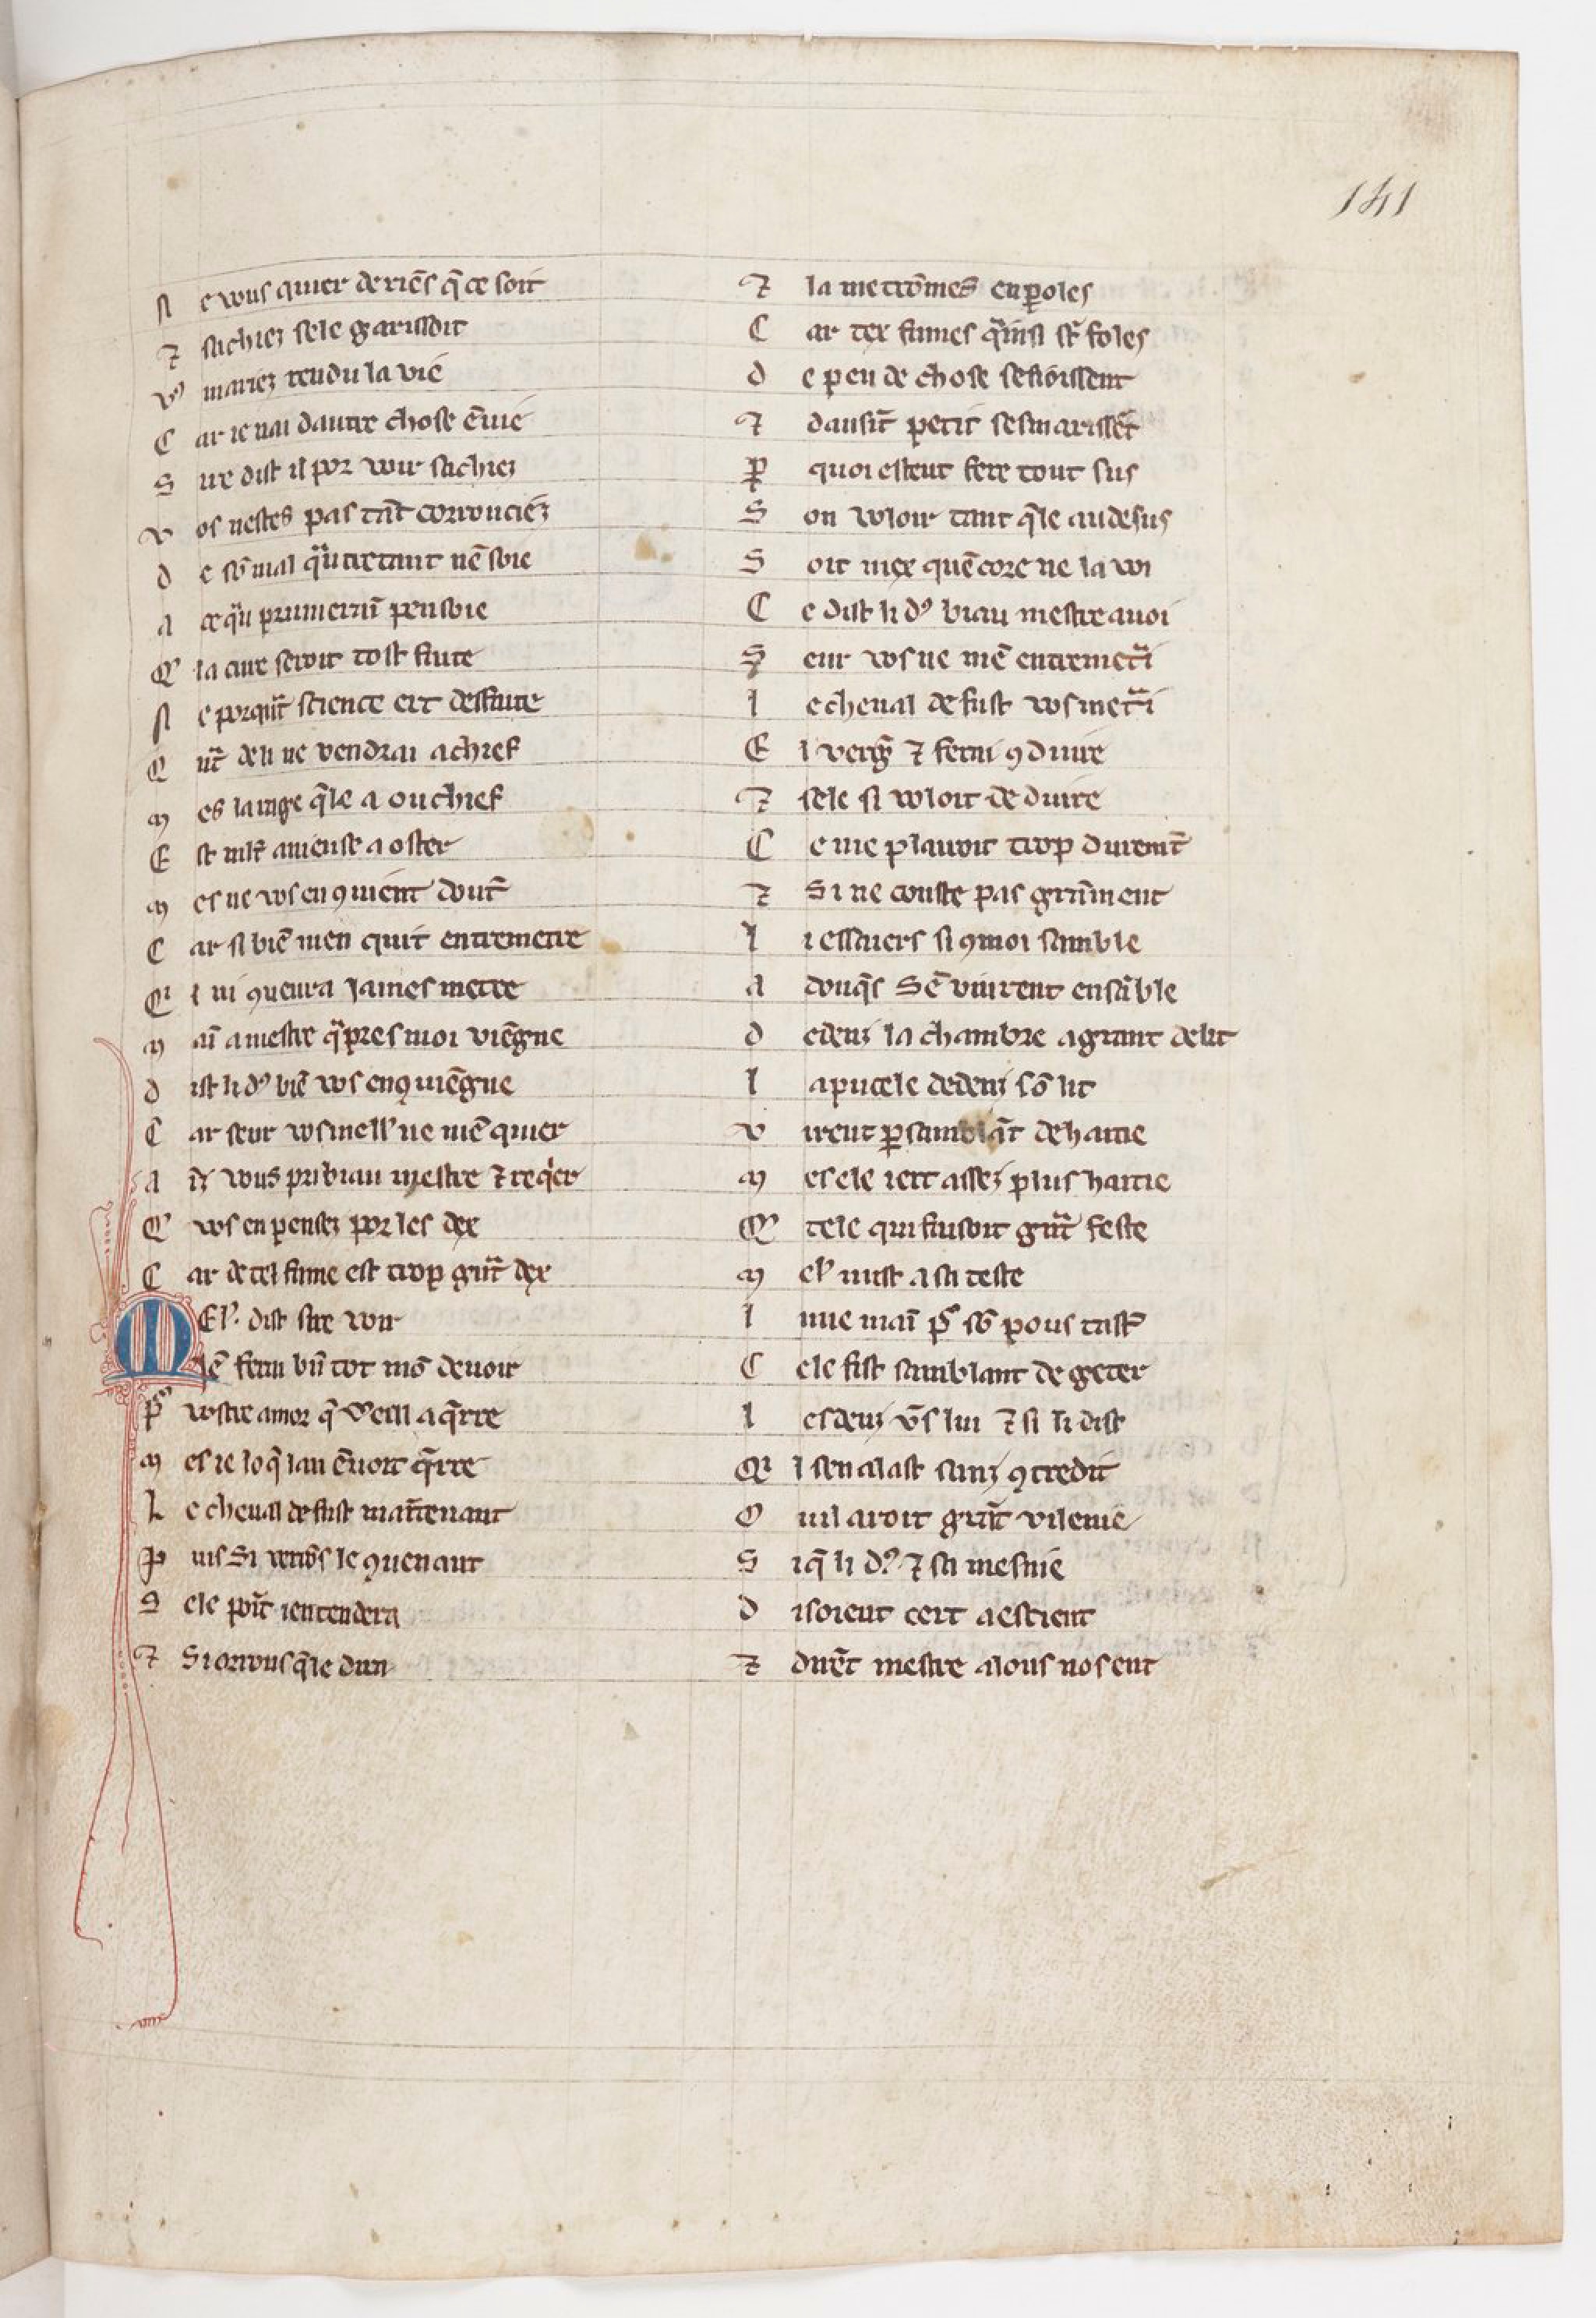 141
N e vous quier de riēs q̄ ce soit
⁊ sachiez sele garissoit
V9 mariez rendu la vie
C ar ie nai dautre chose ēuie
S ire dist il por voir sachiez
V os nestes pas tāt corrouciez
D e sō mal qͣutretant nē soie
A ce qͣu prumerain pensoie
Q' la cure seroit tost faite
N e porqͣt science ert desfaite
Q ūt de li ne vendrai a chief
M es la rage q̄le a ou chief
E st mlt̄ anieuse a oster
M es ne vos en ꝯuient dout̄
C ar si biē men quit entremetre
Qi l ni ꝯuenra James metre
M aī a mestre qͣpres moi viēgne
D ist li d9 biē vos en ꝯuiēgne
C ar seur vos mell' ne mē quier
A īz vous pri biau mestre ⁊ reqier
Q' vos en pensez por les dex
C ar de tel fame est trop gͣnt dex
M El'. dist sire voir
J ē ferai bn̄ tot mō deuoir
P͛ vostre amor q̄ veill aq̄rre
M es ie lo q̄ lan ēuoit q̄rre
L e cheual de fust maītenant
P uis Si verrōs le ꝯuenant
S ele poīt i entendera
⁊ Si orrons q̄le dira
⁊ la metrōmes en ꝑoles
C ar tex fames qͣinsi st̄ foles
D e peu de chose sesioissent
⁊ dausit̄ petit sesmarissēt
ꝑ quoi esteut fere tout sus
S on voloir tant q̄le audesus
S oit mex quēcore ne la voi
C e dist li d9 biau mestre auoi
S eur vos ne mē entremetͣi
L e cheual de fust vos metͣi
E l verḡ ⁊ ferai ꝯduire
⁊ sele si voloit deduire
C e me plairoit trop duremt̄
⁊ Si ne couste pas grāment
L i essaiers si ꝯmoi samble
A donq̄s Sē vinrent ensāble
D edenz la chambre a grant delit
L a pucele dedenz sō lit
V irent ꝑ samblāt dehaitie
M es ele iert assez plus haitie
Q' tele qui faisoit gͣnt feste
M el' mist a sa teste
L une maī p͛ sō pous tast͛
C ele fist samblant de geter
L es denz v̄s lui ⁊ si li dist
Qi l sen alast sanz ꝯtredit
O u il aroit grāt vilenie
S i q̄ li d9 ⁊ sa mesnie
D isoient cert a escient
⁊ diuēt mestre alous nosent